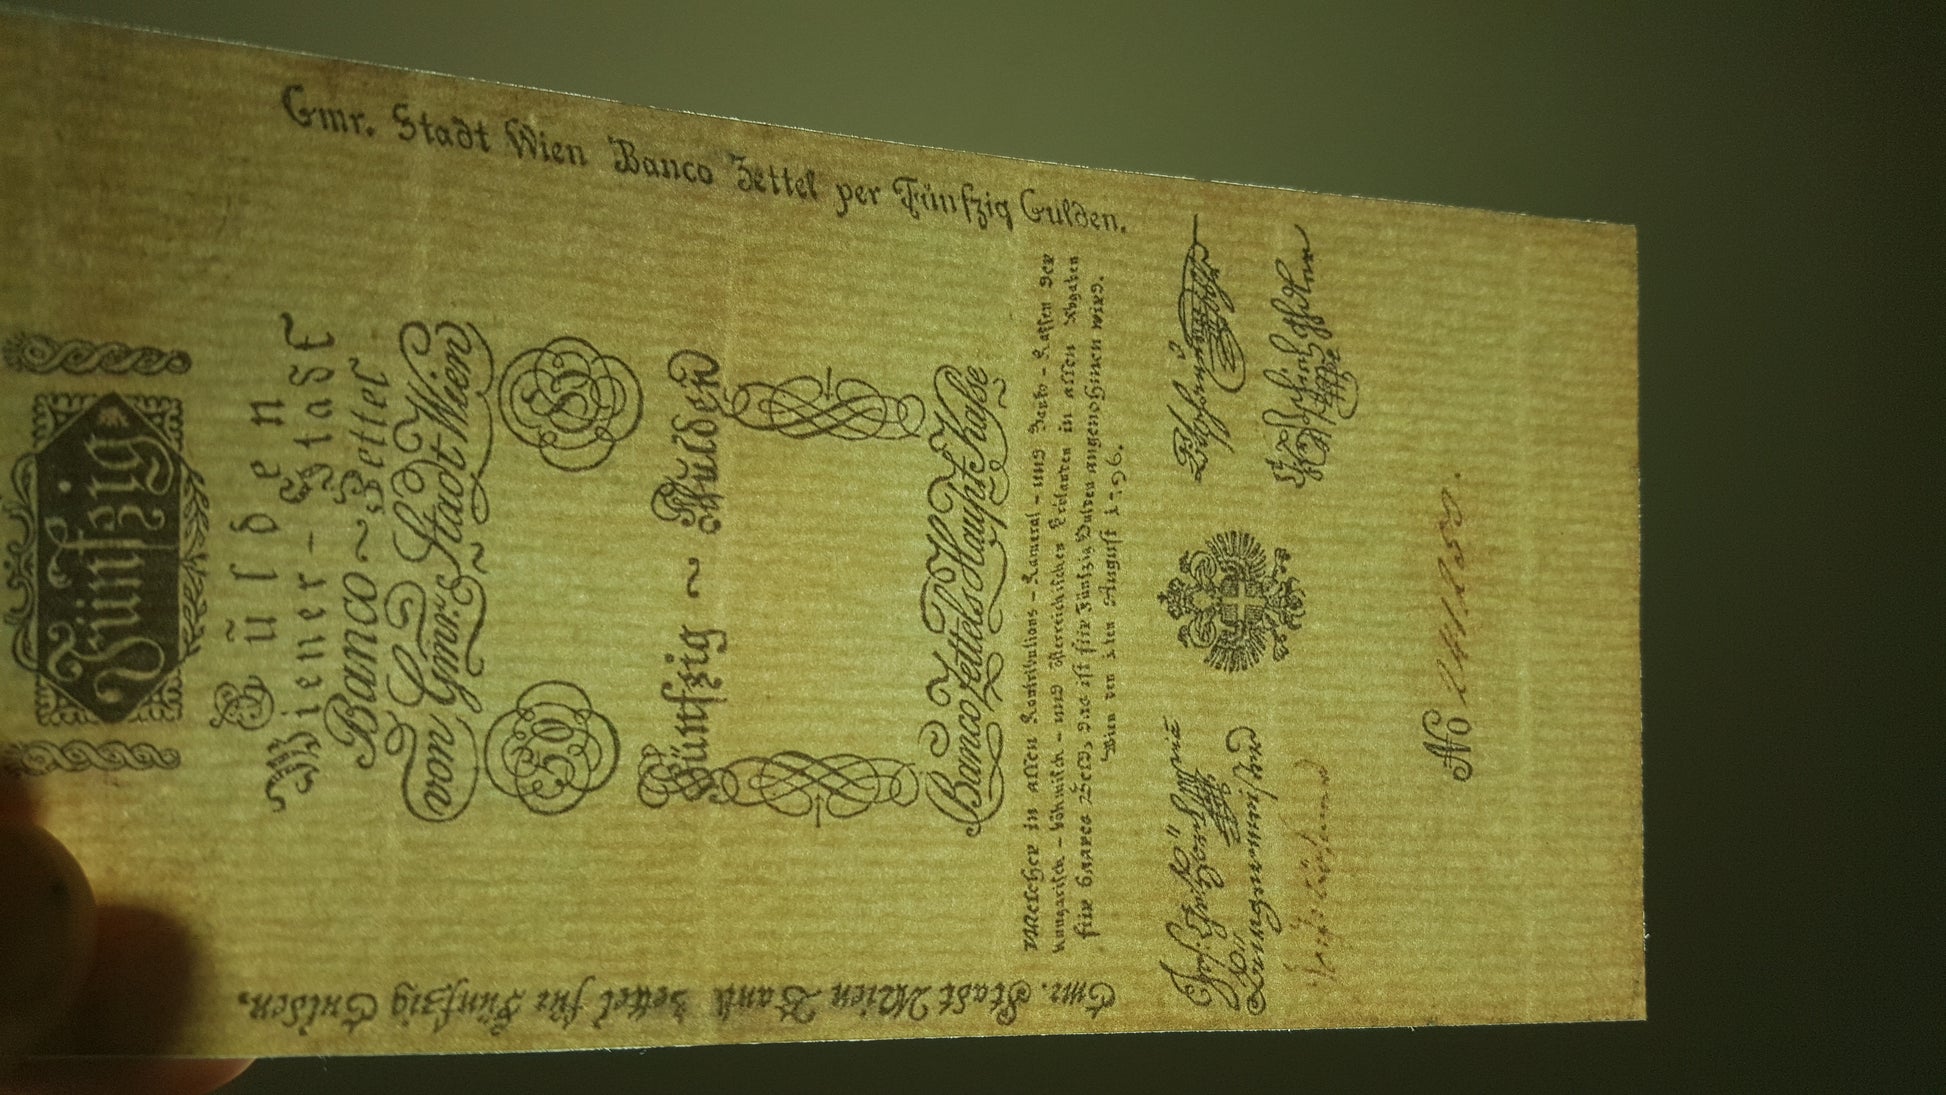 Gmr. Stadt Wien Banco Zettel per Fünfzig Gulden.
Fünfzig
Gulden
Wiener-Stadt
Banco~Zettel
von Gmr: Stadt Wien
50
50
Fünfzig ~ Gulden
Banco Zettels Haupt Kasse
Welcher in allen Kontributions-Kameral-und Banko-Kassen der
hungarisch-böhmisch-und österreichischen Erblanden in allen Abgaben
für baares Geld, das ist für Fünfzig Gulden angenohmen wird.
Wien den 1ten August 1796.
No
Gmr. Stadt Wien Banco Zettel für Fünfzig Gulden.